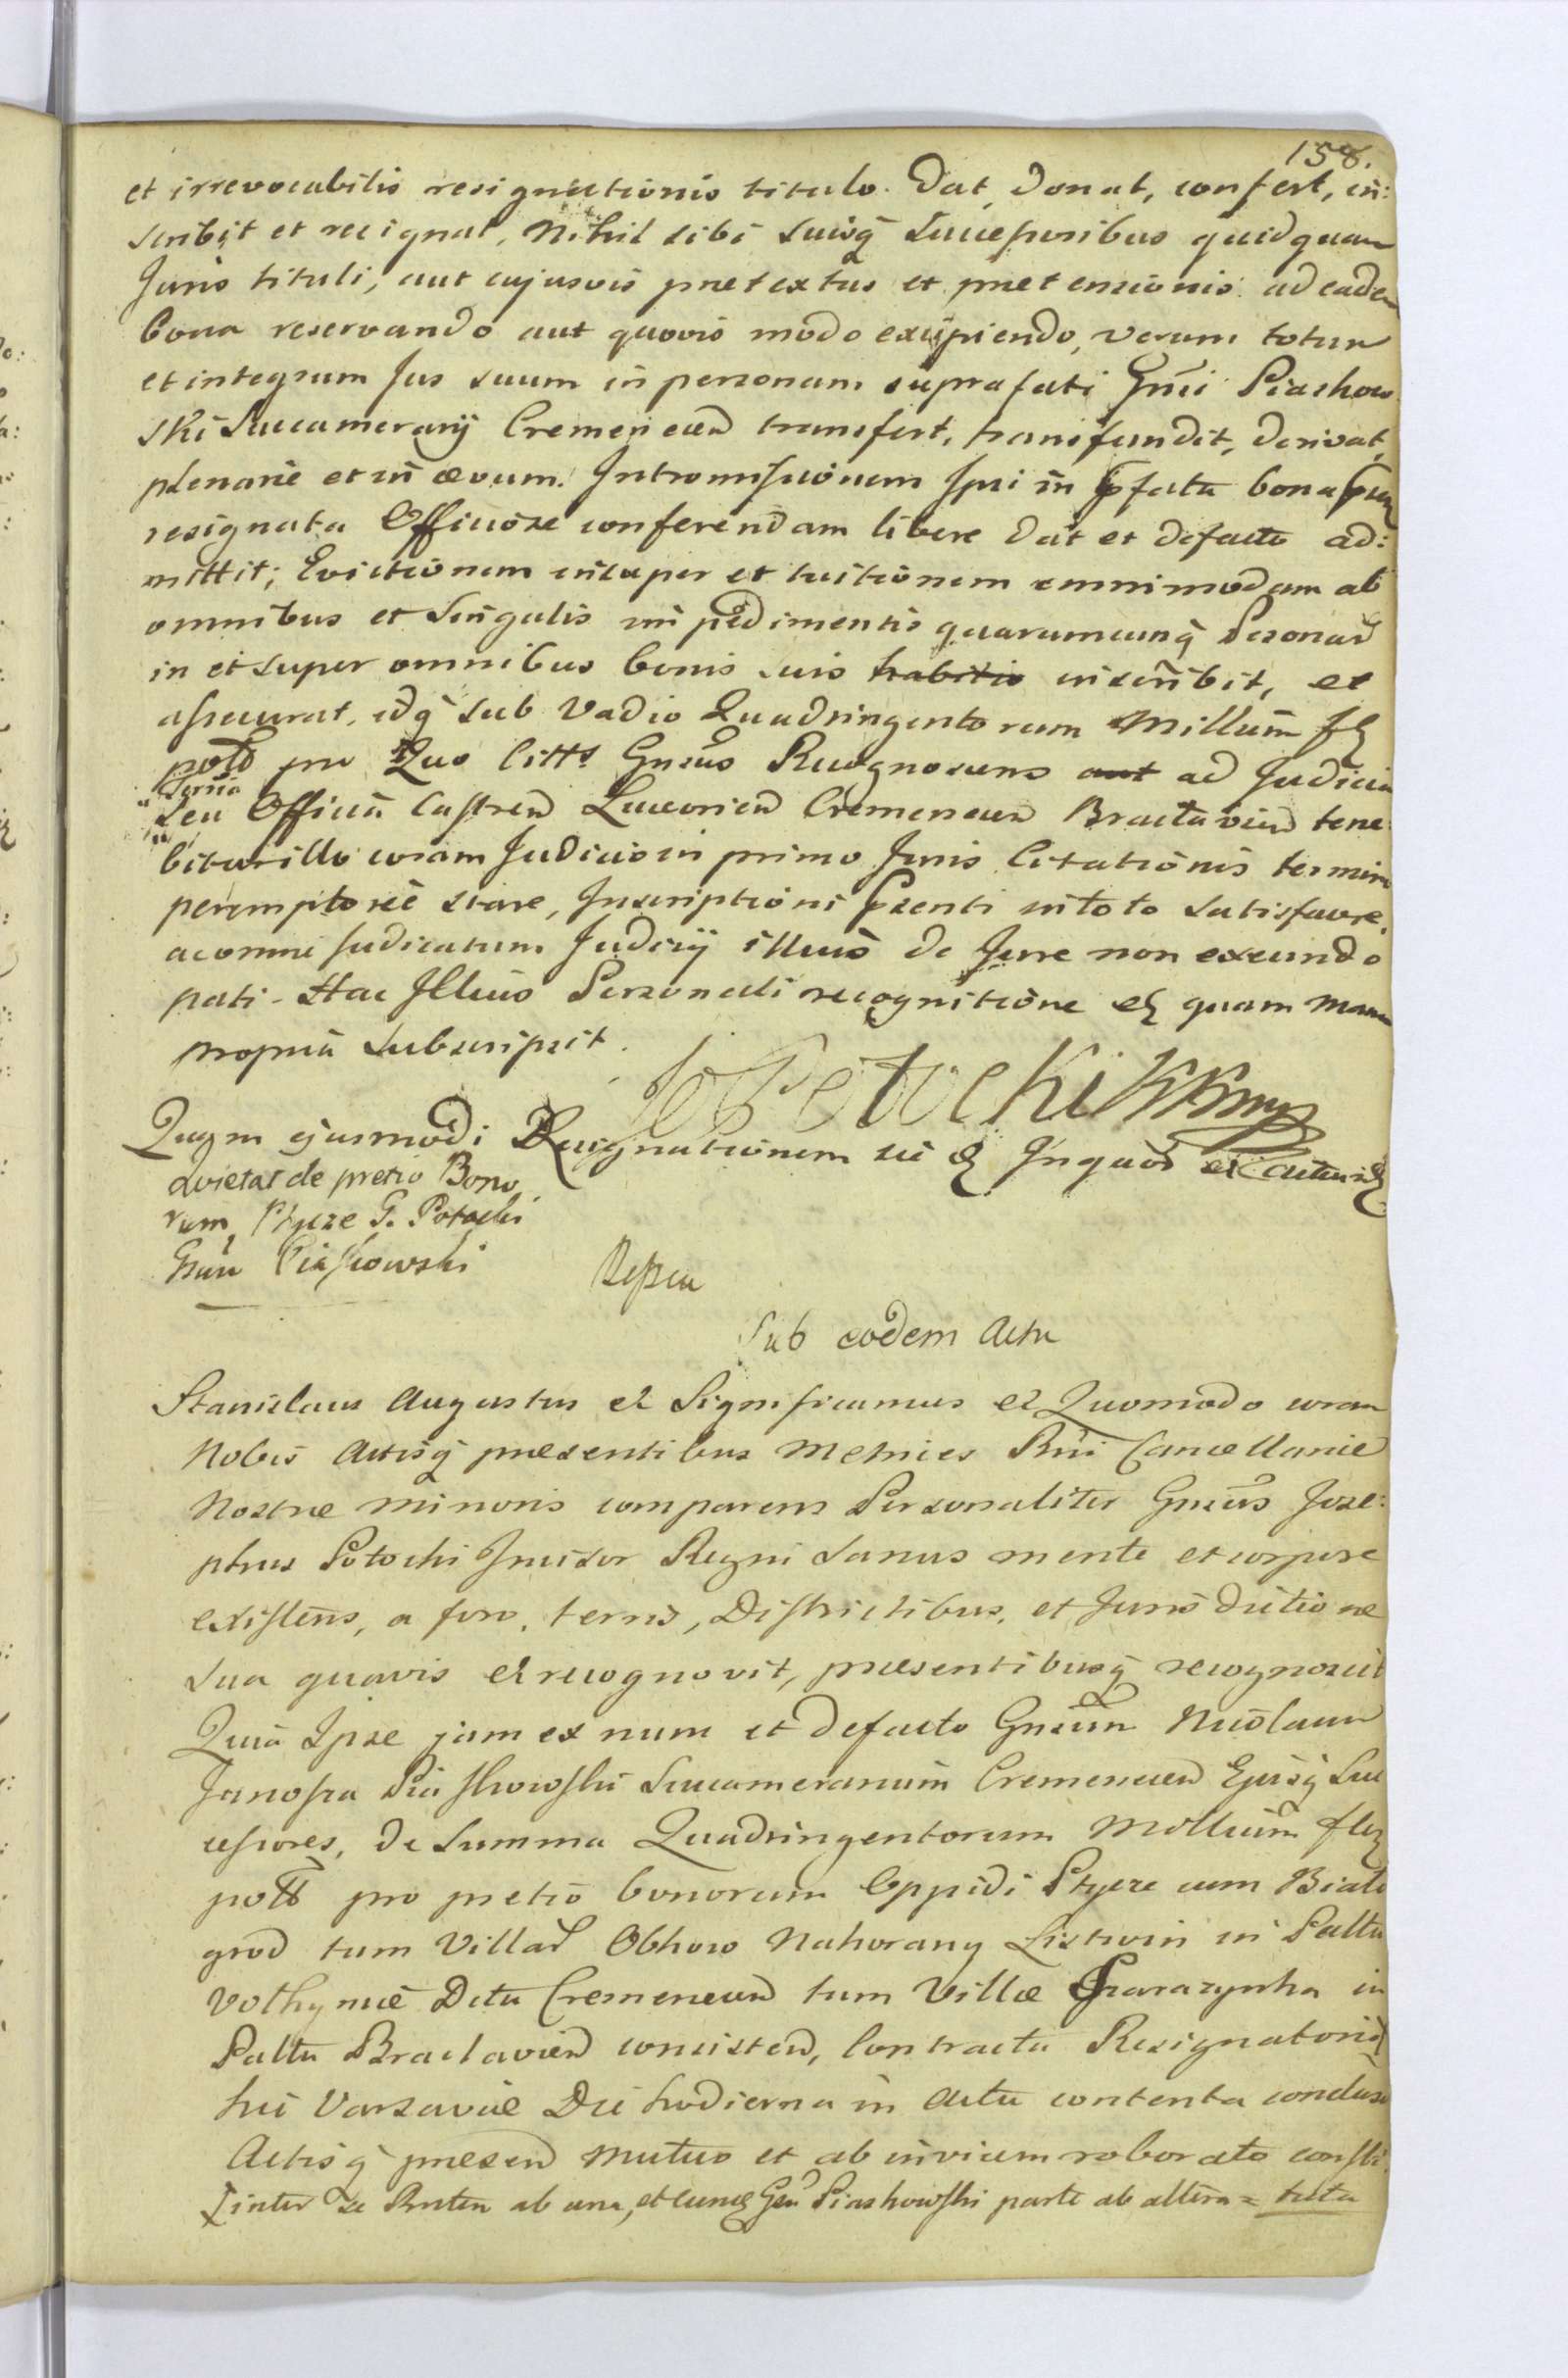 158.
et irrevocabilis resignationis titulo. Dat, Donat, confert, in:
scribit et resignat, Nihil sibi suisq̃ Successoribus quidquam
Juris tituli, aut cujusvis prætextus et prætensionis ad eadem
bona reservando aut quovis modo excipiendo, verum totum
et integrum Jus suum in personam suprafati Gnsi Piaskow
ski Succamerarij Cremenecen transfert, transfundit, derivat,
plenarie et in ævum. Intromissionem Ipsi in pfata bona psen
resignata Officiose conferendam libere dat et defacto ad:
mittit; Evictionem insuper et tuitionem omnimodam ab
omnibus et Singulis impedimentis quarumcunq̃ Personar
in et super omnibus bonis suis habitis inscribit, et
assecurat, idq̃ sub Vadio Quadringentorum Millium fl
poll pro Quo litts Gnsus Recognoscens aut ad Judicia
Terria
seu Officia Castren Luceorien Cremenecen Braclavien tene
bitur illo coram Judicio in primo Juris Citationis termino
peremptorie stare, Inscriptioni psenti in toto satisfacere,
ac omne Judicatum Judicij illius de Jure non exeundo
pati. Hac Illius Personali recognitione & quam Manu
propria subscripsit.
Jo Potocki KKmp
Quam ejusmodi Resignationem sic & Inquos & Actu id
Quietat de pretio Bono
rum, Ptycze G. Potocki
Gsum Piaskowski
Sub eodem Actu
Stanislaus Augustus & Significamus & Quomodo coram
Nobis Actisq̃ præsentibus Metrices Rni Cancellariæ
Nostræ minoris comparens Personaliter Gnsus Jose:
phus Potocki Incisor Regni sanus mente et corpore
existens, a foro, terris, Districtibus, et Jurisdictione
sua quavis & recognovit, præsentibusq̃ recognoscit
Quia Ipse jam ex nunc et defacto Gnsum Nicolaum
Junosza Piaskowski Succamerarium Cremenecen Ejusq̃ Suc
cessores, de Summa Quadringentorum Millium flor
poll pro pretio bonorum Oppidi Ptycze cum Biało
grod tum Villar Obhow Nahorany Listwin in Pallu
Volhyniæ Dctu Cremenecen tum VillæHarazynka in
Pallu Braclavien consisten, Contractu Resignatorio
hic Varsaviæ Die hodierna in Actu contenta concluso
Actisq̃ præsen Mutuo et ab invicem roborato consti:
inter se Rnten ab una, et eumq̃ Gsu Piaskowski parte ab altera = tuta